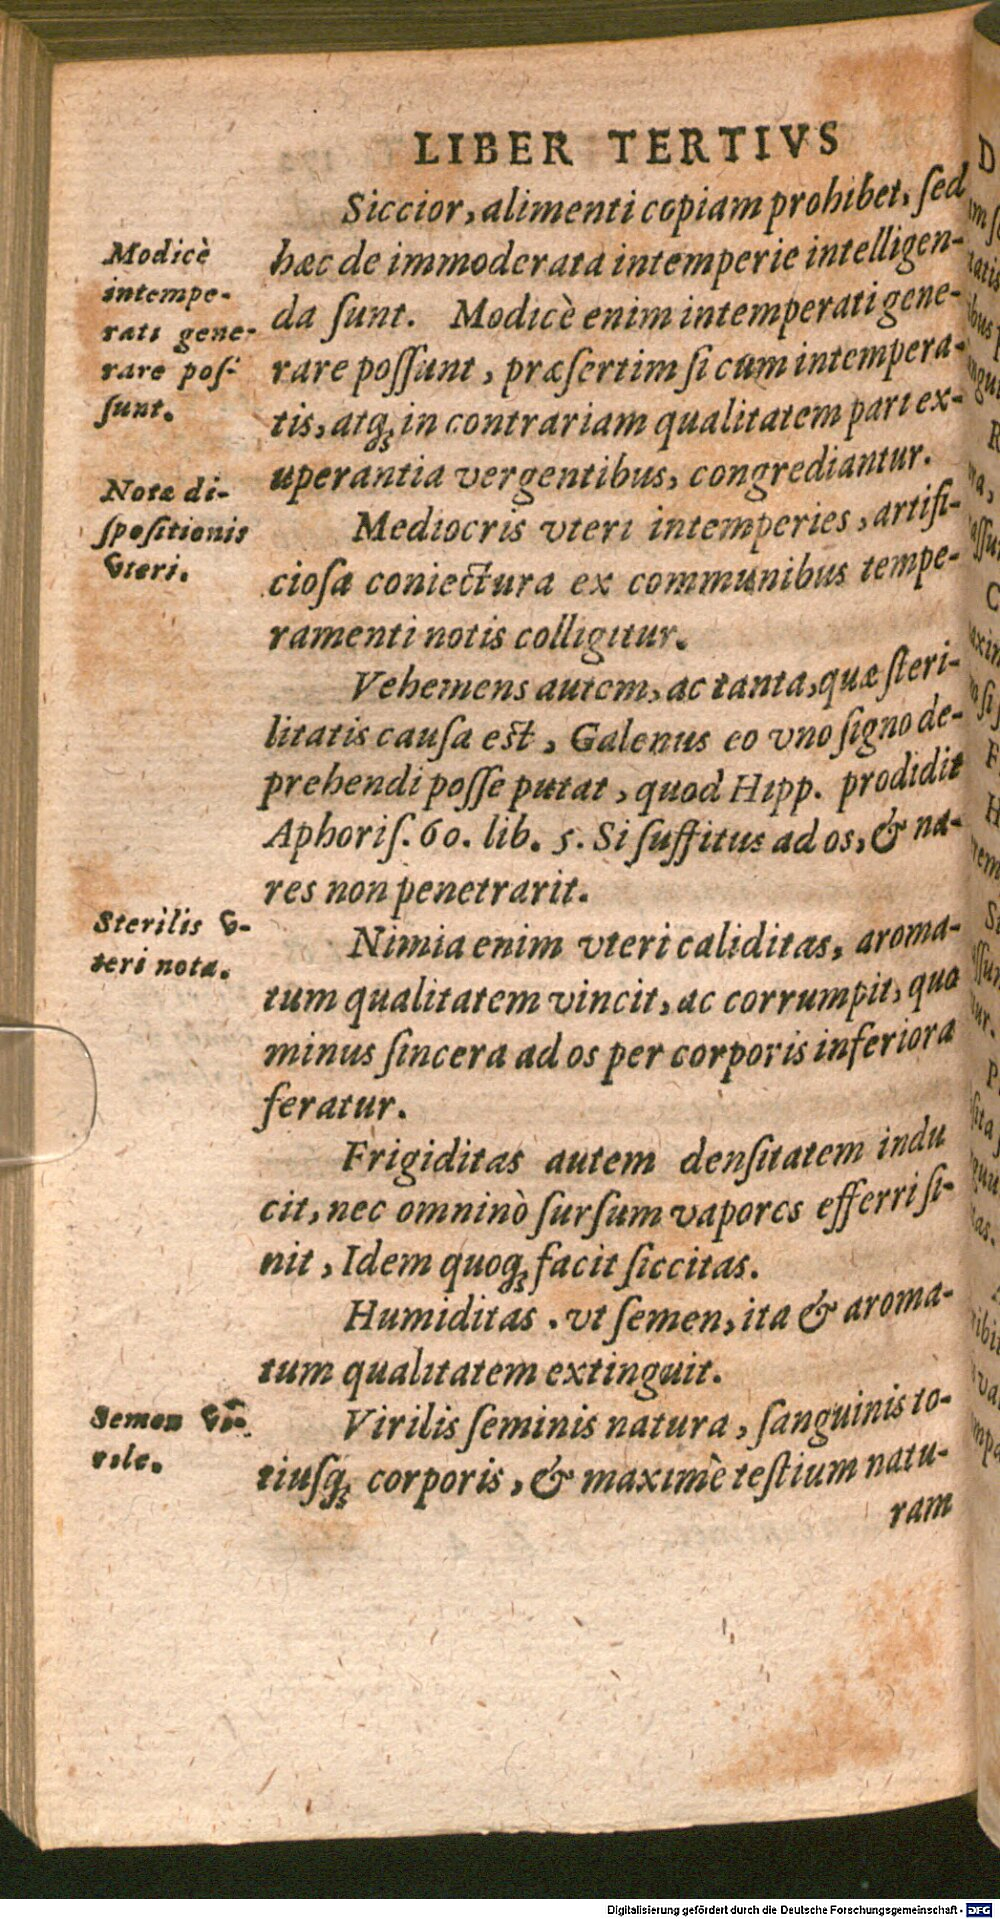 LIBER TERTIVS
Siccior, alimenti copiam prohibet, ſed
hæc de immoderata intemperie intelligen-
da ſunt. Modicè enim intemperati gene-
rare poſſunt, præſertim ſi cum intempera-
tis, atq; in contrariam qualitatem pari ex-
uperantia vergentibus, congrediantur.
Mediocris vteri intemperies, artifi-
cioſa coniectura ex communibus tempe-
ramenti notis colligitur.
Vehemens autem, ac tanta, quæ ſteri-
litatis cauſa est, Galenus eo vno ſigno de-
prehendi poſſe putat, quod Hipp. prodidit
Aphoriſ. 60. lib. 5. Si ſuffitus ad os, & na-
res non penetrarit.
Nimia enim vteri caliditas, aroma-
tum qualitatem vincit, ac corrumpit, quo
minus ſincera ad os per corporis inferiora
feratur.
Frigiditas autem denſitatem indu
cit, nec omninò ſurſum vapores efferri ſi-
nit, Idem quoq; facit ſiccitas.
Humiditas . vt ſemen, ita & aroma-
tum qualitatem extinguit.
Virilis ſeminis natura, ſanguinis to-
tiuſq; corporis, & maximè teſtium natu-
ram
Modicè
intempe-
rati gene-
rare poſ-
ſunt.
Notæ di-
ſpoſitionis
vteri.
Sterilis v-
teri nota.
Semen vi-
rile.
Digitalisierung gefördert durch die Deutsche Forschungsgemeinschaft - DFG